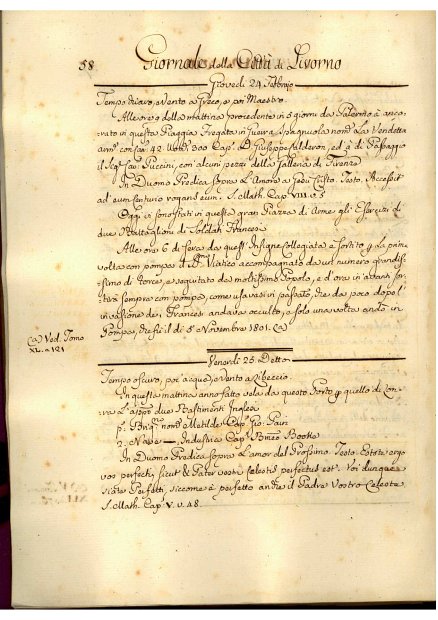 58 Giornale della Città di Livorno
Giovedì 24 Febbrajo
Tempo chiaro, e Vento a Greco, e poi Maestro
Alle ore della mattina precedente in 5 giorni da Palermo è anco:
rato in questa Piaggia Fregata in Guerra Spagnuola nom. La Vendetta
arm. con Can. 42. Uom. 300 Cap. D. Giuseppe Calderon, ed à di Passaggio
il Sig. Cav. Puccini, con alcuni pezzi della Galleria di Firenze
In Duomo Predica sopra L'Amore a Gesù Cristo. Testo. Accessit
ad eum Centurio rogans eum. S. Math. Cap. VIII. v. 5
Oggi si son fatti in questa gran Piazza di Arme gli Esercizi di
due Battaglioni di Soldati Francesi
Alle ore 6 di sera da quest' Insigne Collegiata è sortito p. la prima
volta con pompa il SS. Viatico accompagnato da un numero grandis:
simo di torce, e seguitato da moltissimo Popolo, e d'ora in avanti sor:
tirà sempre con pompa, come usavasi in passato, che da poco dopo l'
invasione de' Francesi andava occulto, e solo una volta andò in
Pompa, che fu il dì 5 Novembre 1801. (a)
(a) Ved. Tomo
XL. a 121
Venerdì 25. Detto
Tempo oscuro, poi acqua, e Vento a Libeccio.
In questa mattina anno fatto vela da questo Porto p. quello di
L'appo due Bastimenti Inglesi
p. Brig. nom. Matilde Cap. Gio: Pain
2. Nave — Industria Cap. Bmeo Boothe
In Duomo Predica sopra L'amor del Prossimo. Testo. Estote ergo
vos perfecti, sicut & Pater vester Celestis perfectus est. Voi dunque
siate Perfetti, siccome è perfetto anche il Padre Vostro Celeste
S. Math. Cap. V. v. 48.